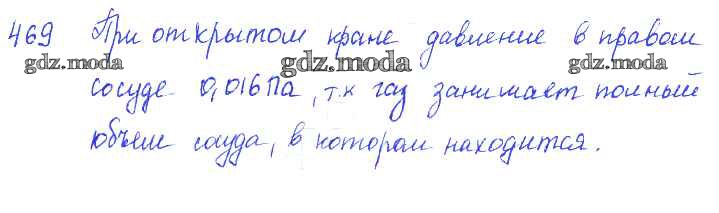 469 При открытом кране давление в правом
gdz.moda gdz.moda gdz.moda
сосуде 0,016 Па, т.к газ занимает полный
объем сосуда, в котором находится.